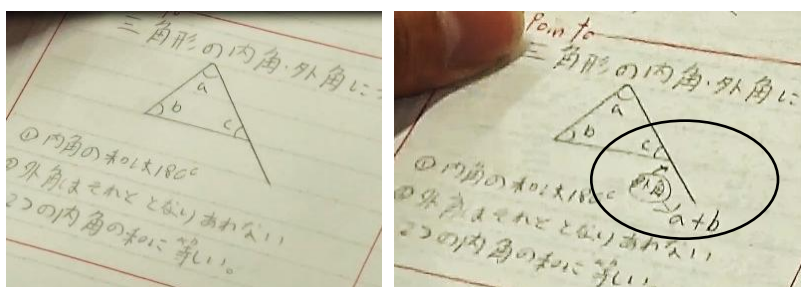 三角形の内角・外角に
a
b
c
①内角の和は180°
②外角はそれととなりあわない
2つの内角の和に等しい。
Point
三角形の内角・外角に
a
b
c
外角
a+b
①内角の和は180°
②外角はそれととなりあわない
2つの内角の和に等しい。